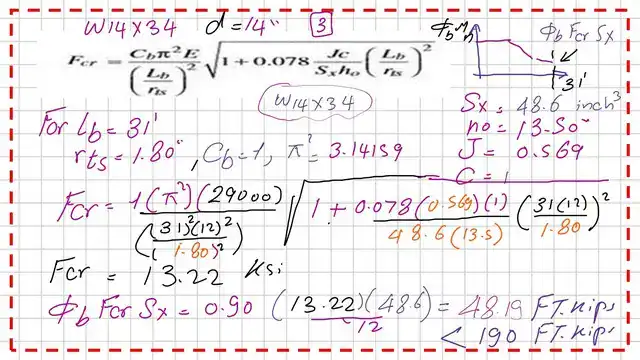 W14x34 d=14" 3
Fcr = Cbπ²E / (Lb/rts)² √1 + 0.078 Jc/Sxho (Lb/rts)²
ΦbMn Φb Fcr Sx
31'
W14x34
For Lb = 31'
rts = 1.80", Cb=1, π² = 3.14159
Sx = 48.6 inch³
ho = 13.50"
J = 0.569
C = 1
Fcr = 1(π²)(29000) / ((31)²(12)²/(1.80)²) √1 + 0.078(0.569)(1) / 48.6(13.5) (31(12)/1.80)²
Fcr = 13.22 Ksi
Φb Fcr Sx = 0.90 (13.22)(48.6)/12 = 48.19 FT.Kips
< 190 FT.Kips